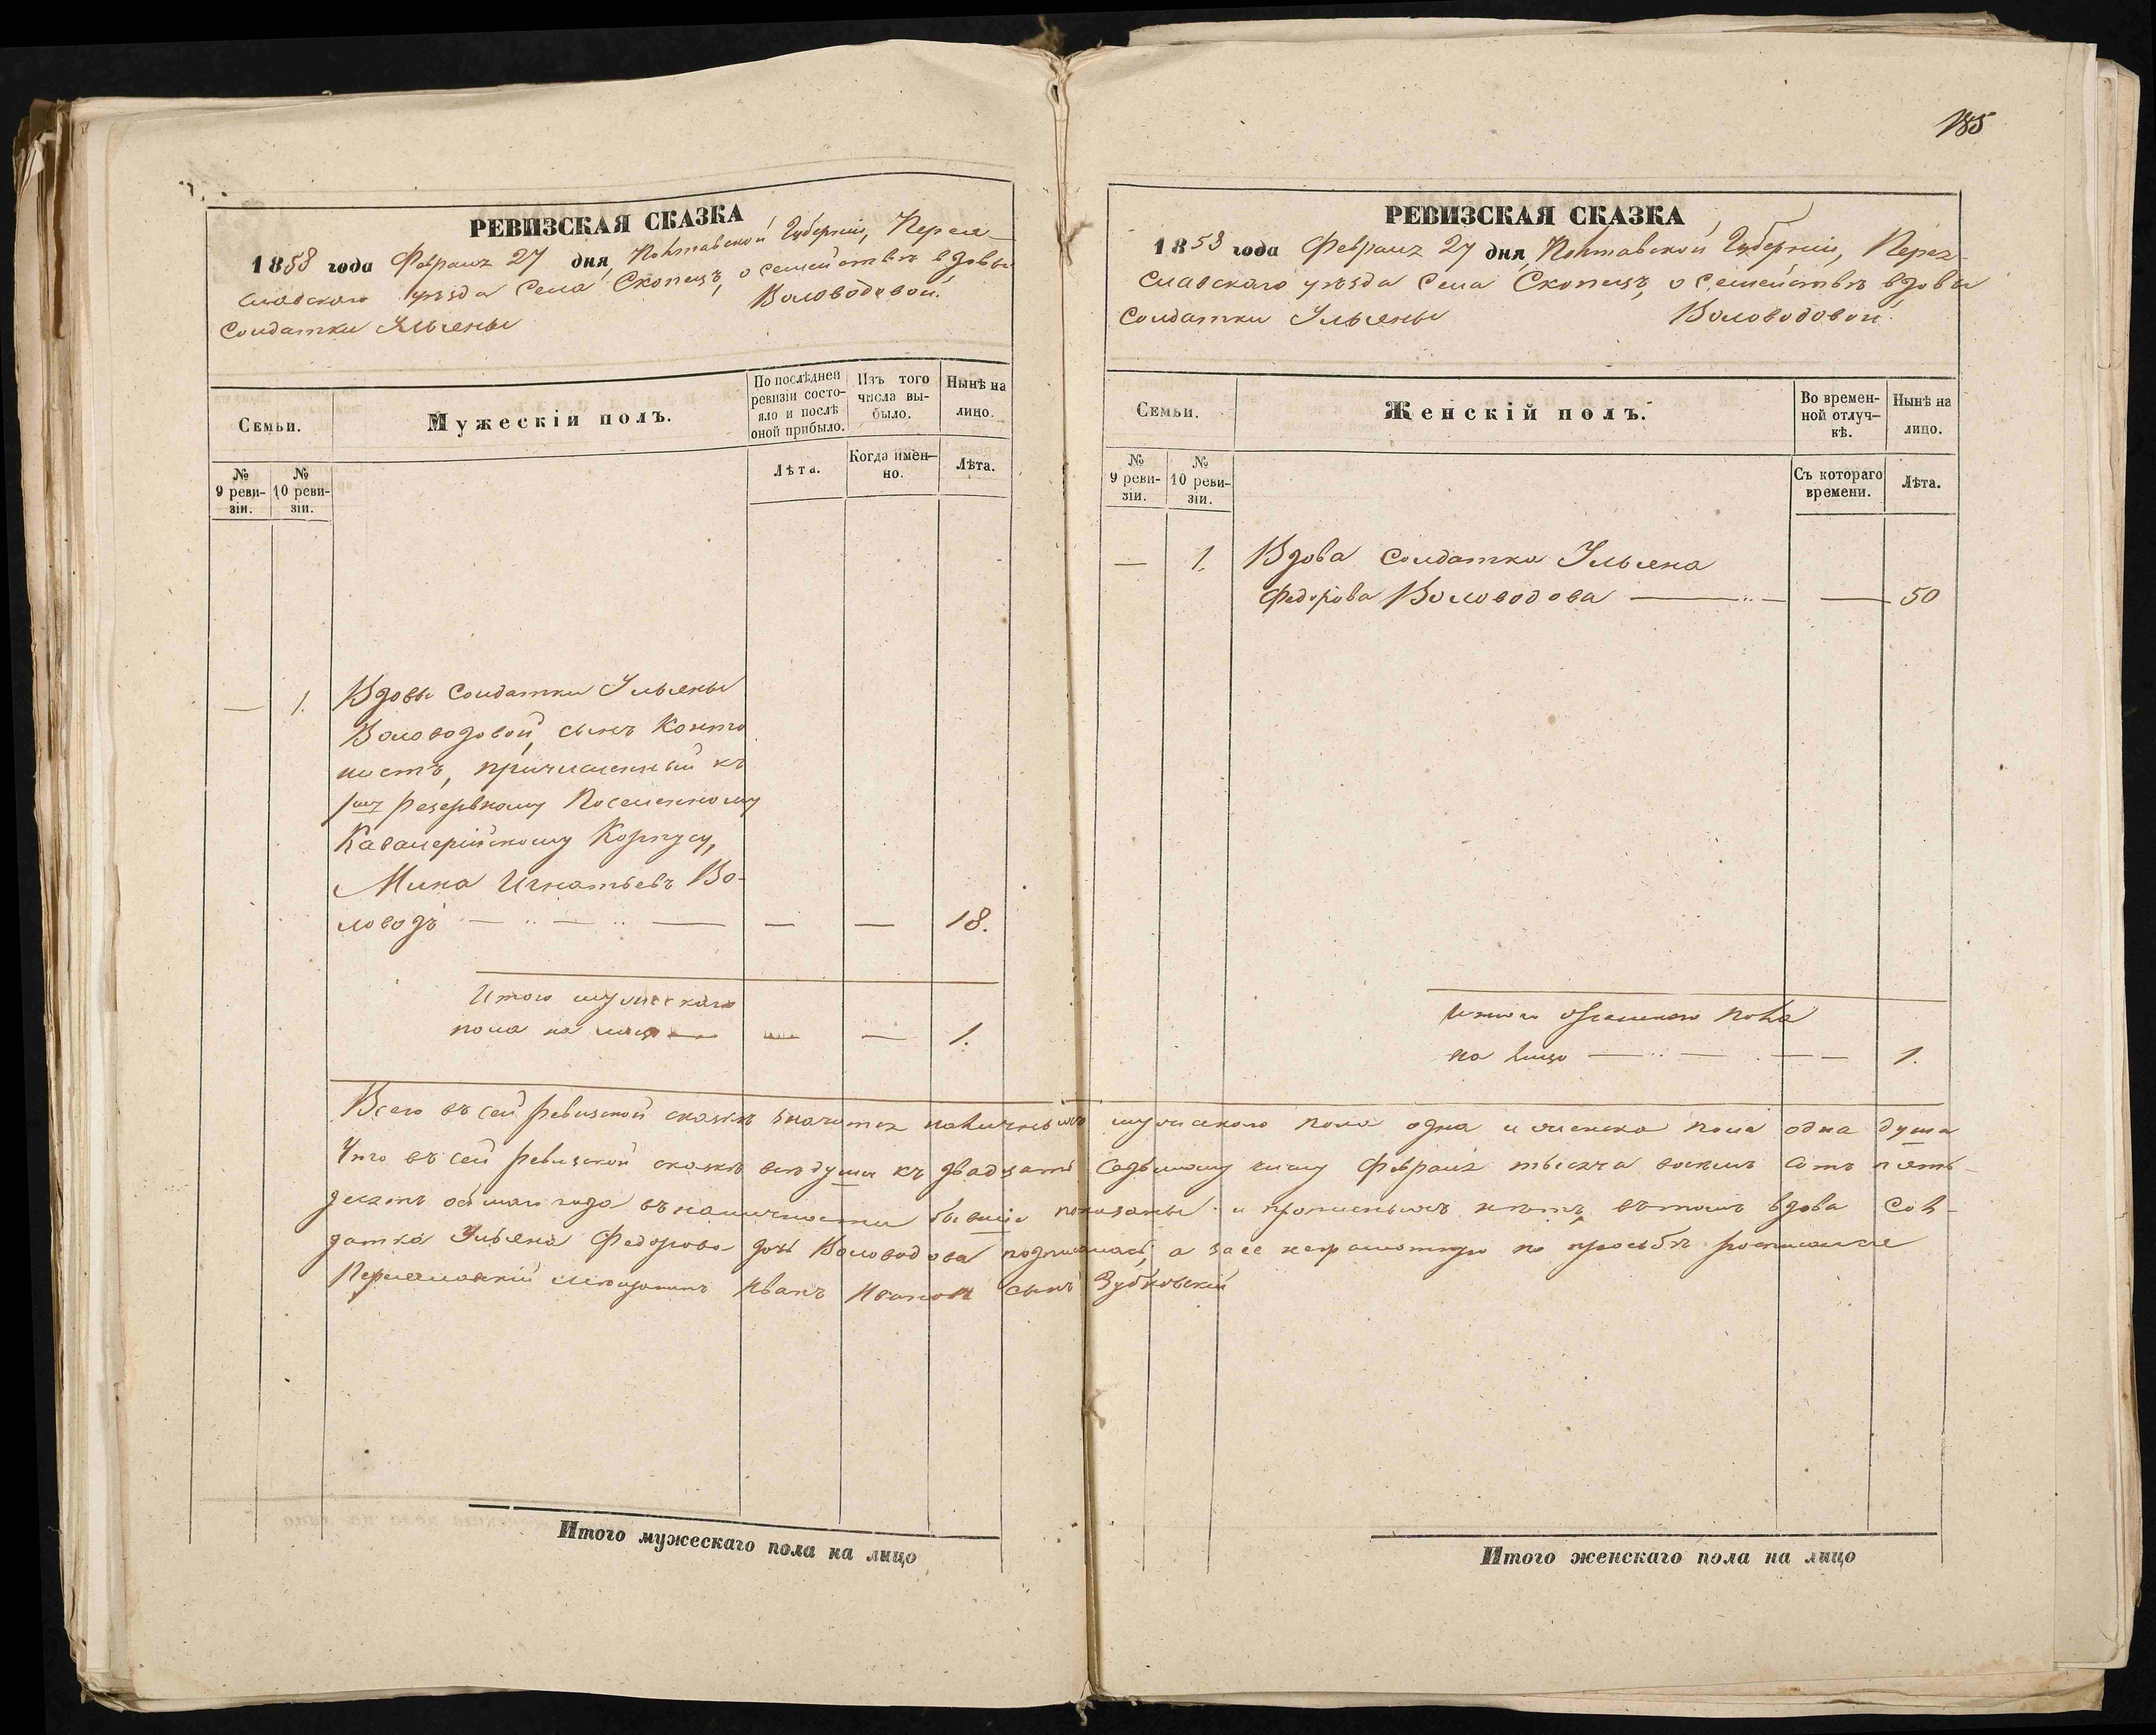 185
РЕВИЗСКАЯ СКАЗКА
1858 года Февраля 27 дня, Полтавской Губерніи, Перея-
славскаго уѣзда Села Скопецъ, о семействѣ вдовы
Солдатки Ульяны Воловодовой.
Семьи.
Мужескій полъ.
По послѣдней ревизіи состо-
яло и послѣ оной прибыло.
Изъ того числа вы-
было.
Нынѣ на лицо.
№ 9 реви-
зіи.
№ 10 реви-
зіи.
Лѣта.
Когда имен-
но.
Лѣта.
— 1. Вдовы Солдатки Ульяны
Воловодовой, сынъ Канто
нистъ, причисленный къ
1му Резервному Поселенному
Кавалерійскому Корпусу,
Мина Игнатьевъ Во-
ловодъ — — — — — 18.
Итого мужескаго
пола на лицо — — — 1.
РЕВИЗСКАЯ СКАЗКА
1858 года Февраля 27 дня, Полтавской Губерніи, Перея-
славскаго уѣзда Села Скопецъ, о семействѣ вдовы
Солдатки Ульяны Воловодовой.
Семьи.
Женскій полъ.
Во времен-
ной отлуч-
кѣ.
Нынѣ на лицо.
№ 9 реви-
зіи.
№ 10 реви-
зіи.
Съ котораго времени.
Лѣта.
— 1. Вдова Солдатка Ульяна
Федорова Воловодова — — — 50
Итого женскаго пола
на лицо — — — — 1.
Всего въ сей ревизской сказкѣ значится наличныхъ мужескаго пола одна и женска пола одна душа
Что въ сей ревизской сказкѣ всѣ души къ двадцать седьмому числу Февраля тысяча восемь сотъ пять-
десятъ осьмаго года въ наличности бывшіе показаны и прописныхъ нѣтъ, въ томъ вдова Сол-
датка Ульяна Федорова дочь Воловодова подписалась, а за ее неграмотную по просьбѣ росписался
Переяславскій мѣщанинъ Иванъ Иванов сынъ Зубковскій
Итого мужескаго пола на лицо
Итого женскаго пола на лицо